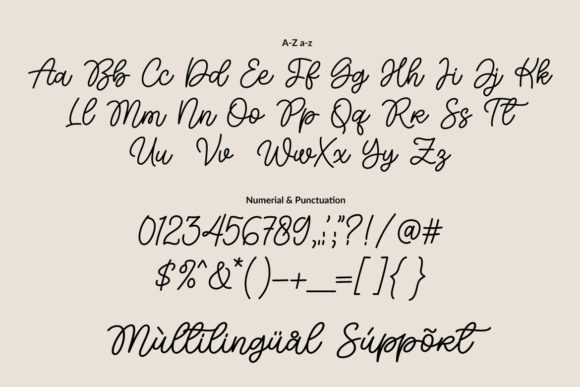 A-Z a-z
Aa Bb Cc Dd Ee Ff Gg Hh Ii Jj Kk
Ll Mm Nn Oo Pp Qq Rr Ss Tt
Uu Vv WwXx Yy Zz
Numerial & Punctuation
0123456789,.:';"?!/@#
$%^&*()-+_=[]{}
Mùltilingüål Súppõrt